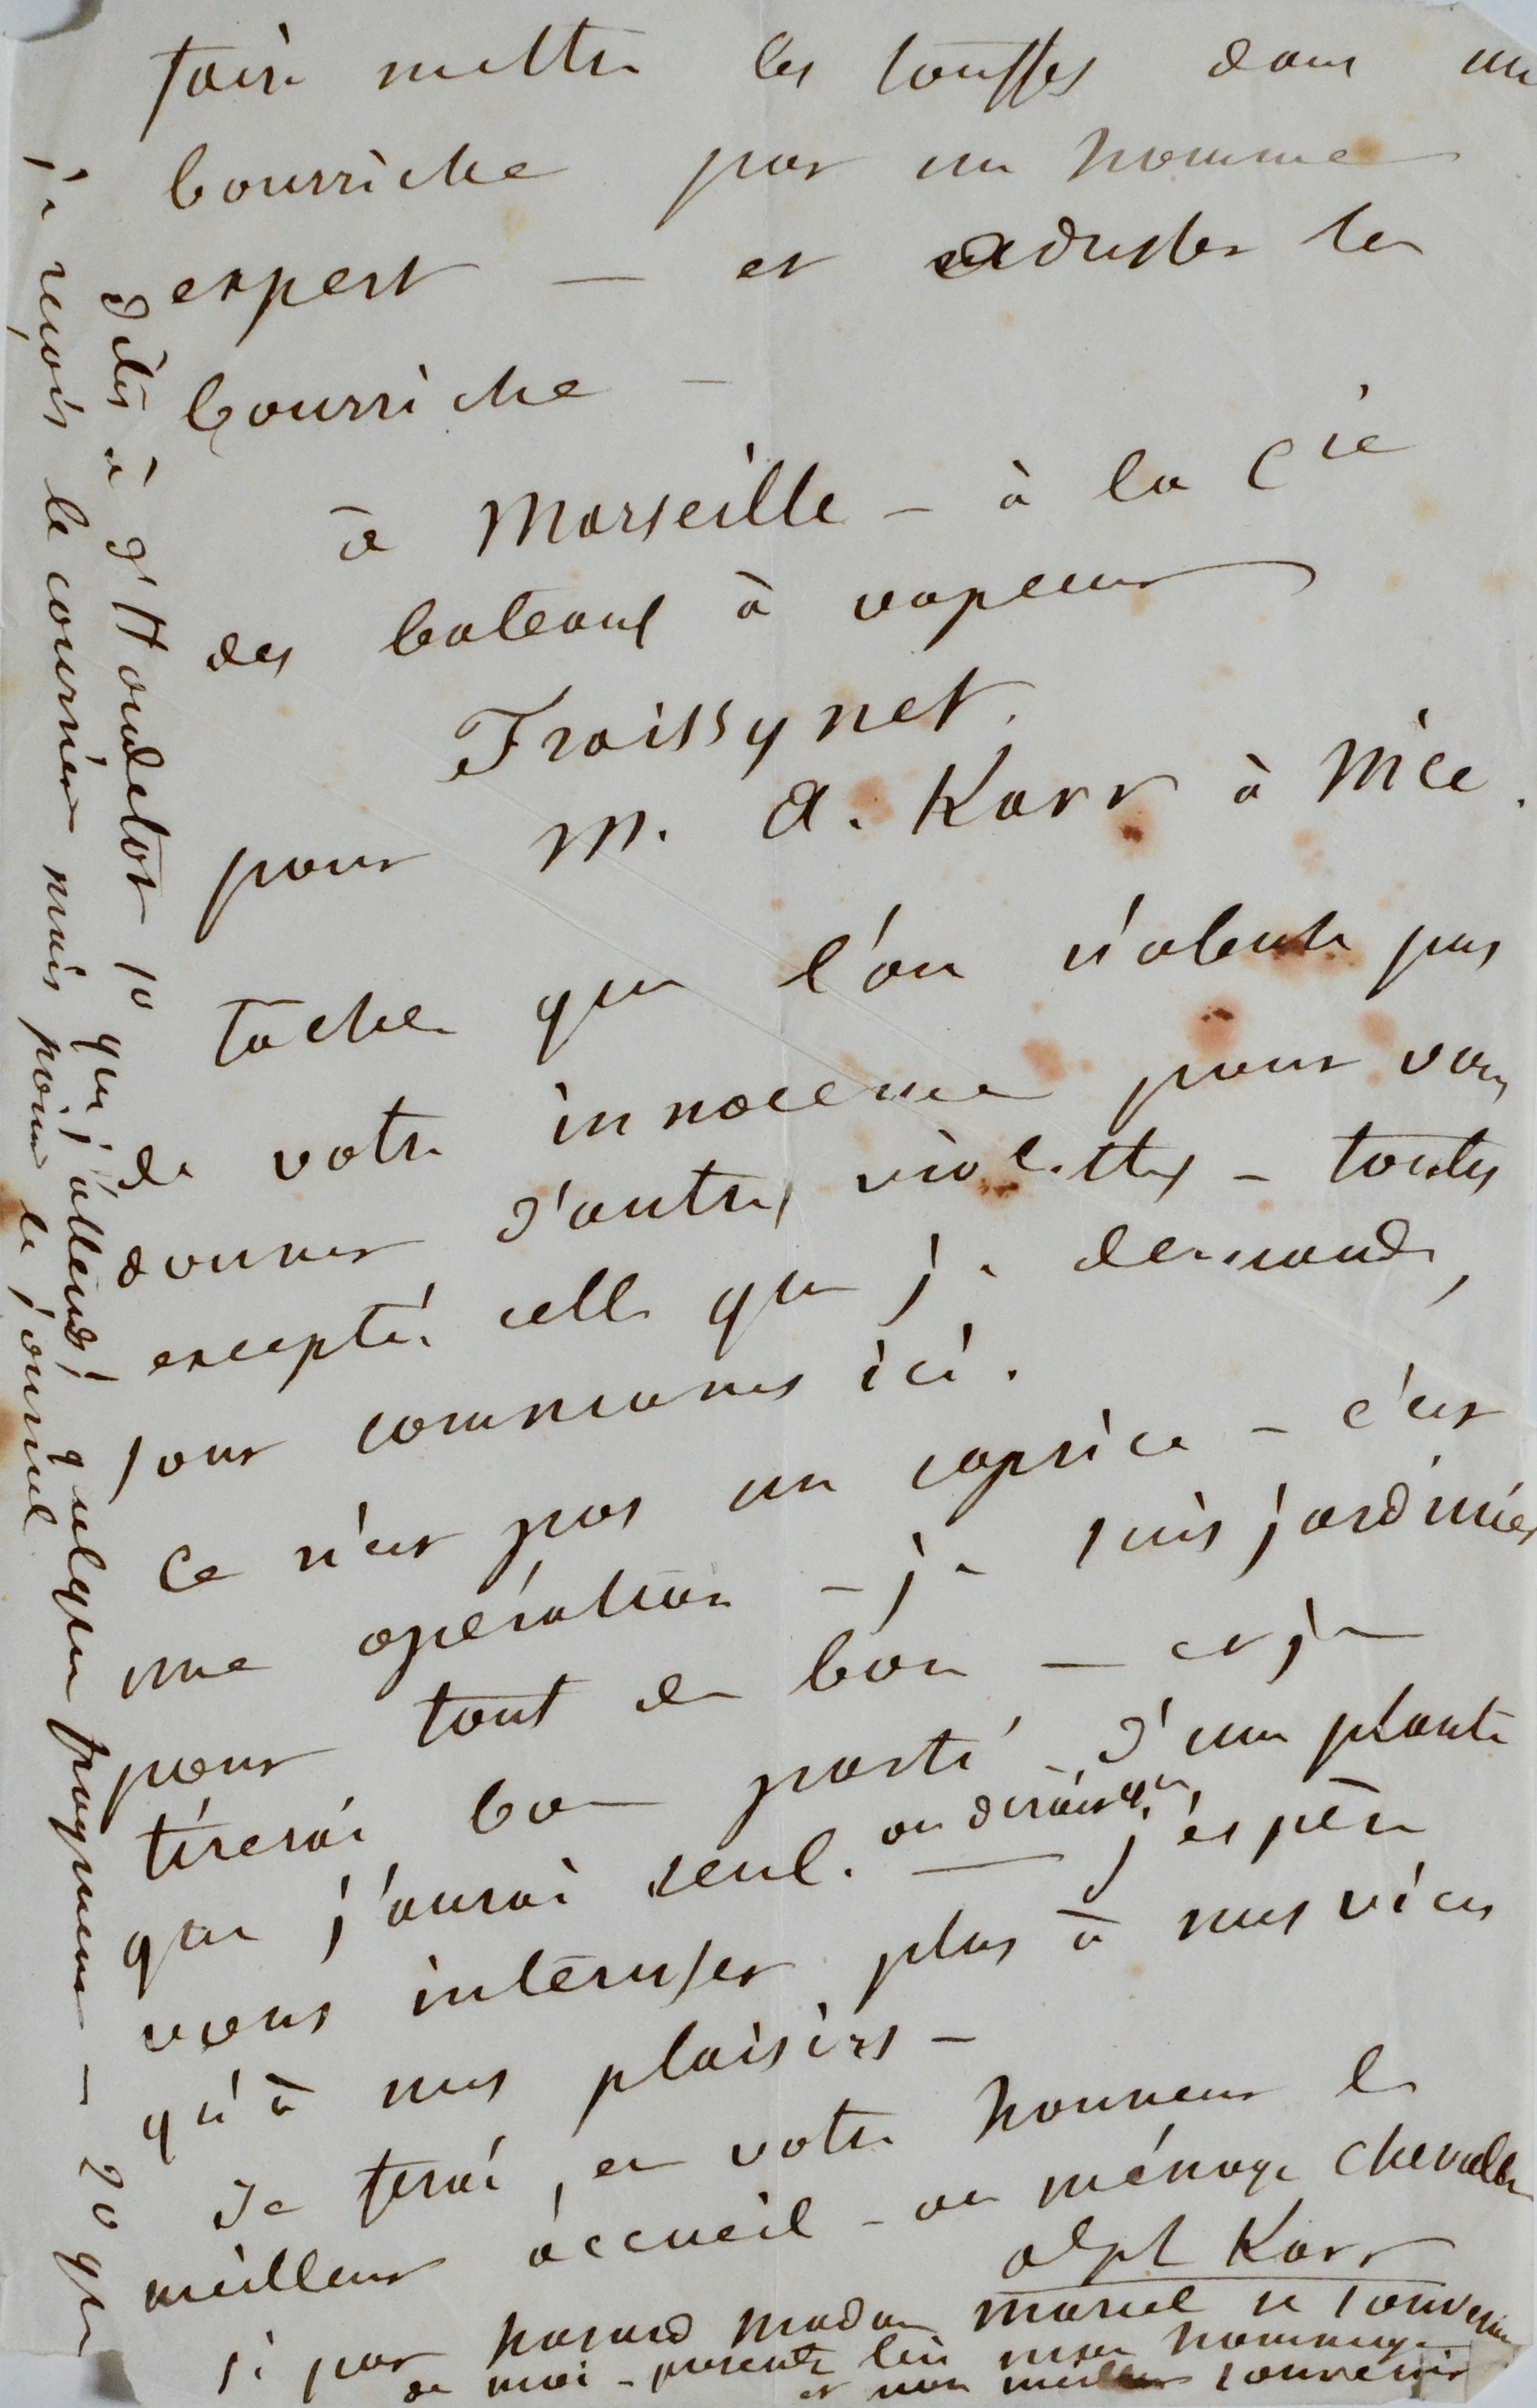 faire mettre les touffes dans une
bourriche par un homme
expert — et adresser la
bourriche —
à Marseille — à la Cie
des bateaux à vapeur
Fraissynet.
pour M. A. Karr à Nice.
tachez que l'on n'abuse pas
de votre innocence pour vous
donner d'autres violettes — toutes
excepté celle que je demande,
sont communes ici.
Ce n'est pas un caprice — c'est
une opération — je suis jardinier
pour tout de bon — et je
tirerai bon parti d'une plante
que j'aurai seul. — j'espère
vous intéresser plus à mes vices
qu'à mes plaisirs —
Je ferai, en votre honneur le
meilleur accueil — au ménage Chevalier
Alph Karr
si par hasard madame se souvenait
de moi — présentez lui mon hommage
et mon meilleur souvenir
dites à d'Houdetot 1o que j'attends quelque payement — 2o que
je reçois le courrier mais point le journal